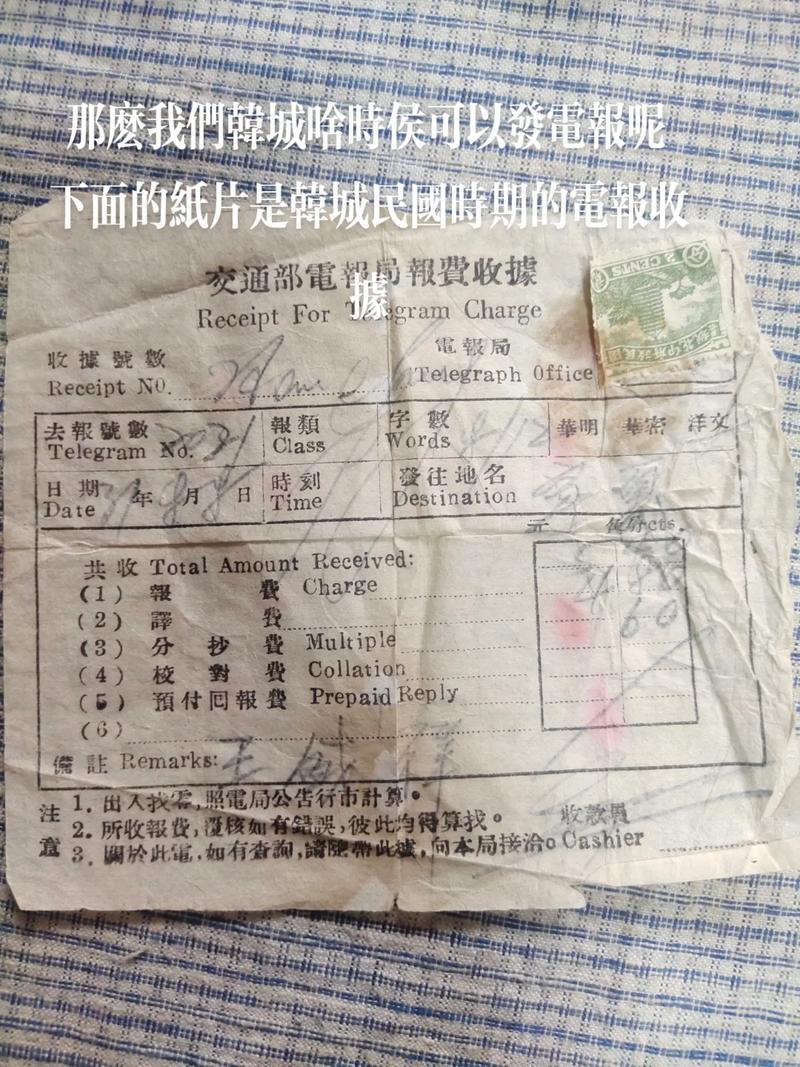 那麼我們韓城啥時侯可以發電報呢
下面的紙片是韓城民國時期的電報收
據
交通部電報局報費收據
Receipt For Telegram Charge
2 CENTS
收據號數 電報局
Receipt NO. Telegraph Office
去報號數 報類 字數 華明 華密 洋文
Telegram No. Class Words
日期 年 月 日 時刻 發往地名
Date Time Destination
元 角分cts.
共收 Total Amount Received:
(1) 報費 Charge
(2) 譯費 60
(3) 分抄費 Multiple
(4) 校對費 Collation
(5) 預付回報費 Prepaid Reply
(6)
備註 Remarks: 王
注意 1. 出入找零,照電局公告行市計算。
2. 所收報費,覆核如有錯誤,彼此均得算找。 收款員
3. 關於此電,如有查詢,請隨帶此據,向本局接洽。 Cashier